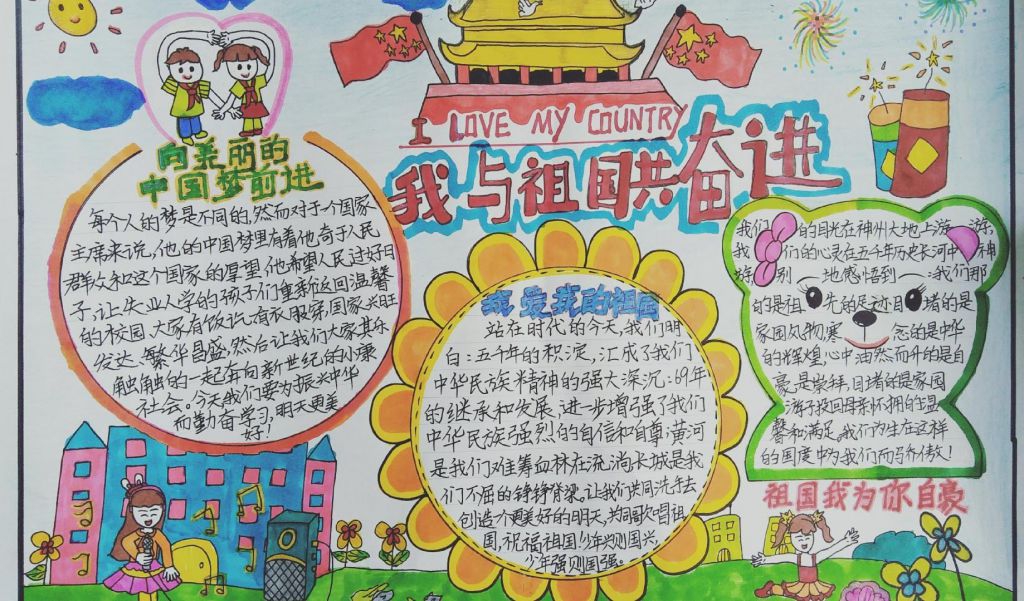 I LOVE MY COUNTRY
我与祖国共奋进
向美丽的
中国梦前进
每个人的梦是不同的,然而对于一个国家
主席来说,他的中国梦里有着他寄于人民
群众和这个国家的厚望,他希望人民过好日
子,让失业入学的孩子们重新返回温馨
的校园,大家有饭吃,有衣服穿,国家兴旺
发达、繁华昌盛,然后让我们大家其乐
融融的一起奔向新世纪的小康
社会。今天我们要为振兴中华
而勤奋学习,明天更美
好!
我爱我的祖国
站在时代的今天,我们明
白:五千年的积淀,汇成了我们
中华民族精神的强大深沉;69年
的继承和发展,进一步增强了我们
中华民族强烈的自信和自尊,黄河
是我们的血脉在流淌,长城是我
们不屈的铮铮脊梁。让我们共同携手去
创造个更美好的明天,共同歌唱祖
国,祝福祖国!少年兴则国兴,
少年强则国强。
我们的目光在神州大地上游游
我们的心灵在五千年历史长河中神
特别地感悟到一:我们那
的是祖先的足迹目睹的是
家园风物,寒念的是中华
的辉煌心中油然而升的是自
豪,是崇拜,目睹的是家园
游子投回母亲怀拥的温
馨和满足。我们为生在这样
的国度中为我们而骄傲!
祖国我为你自豪